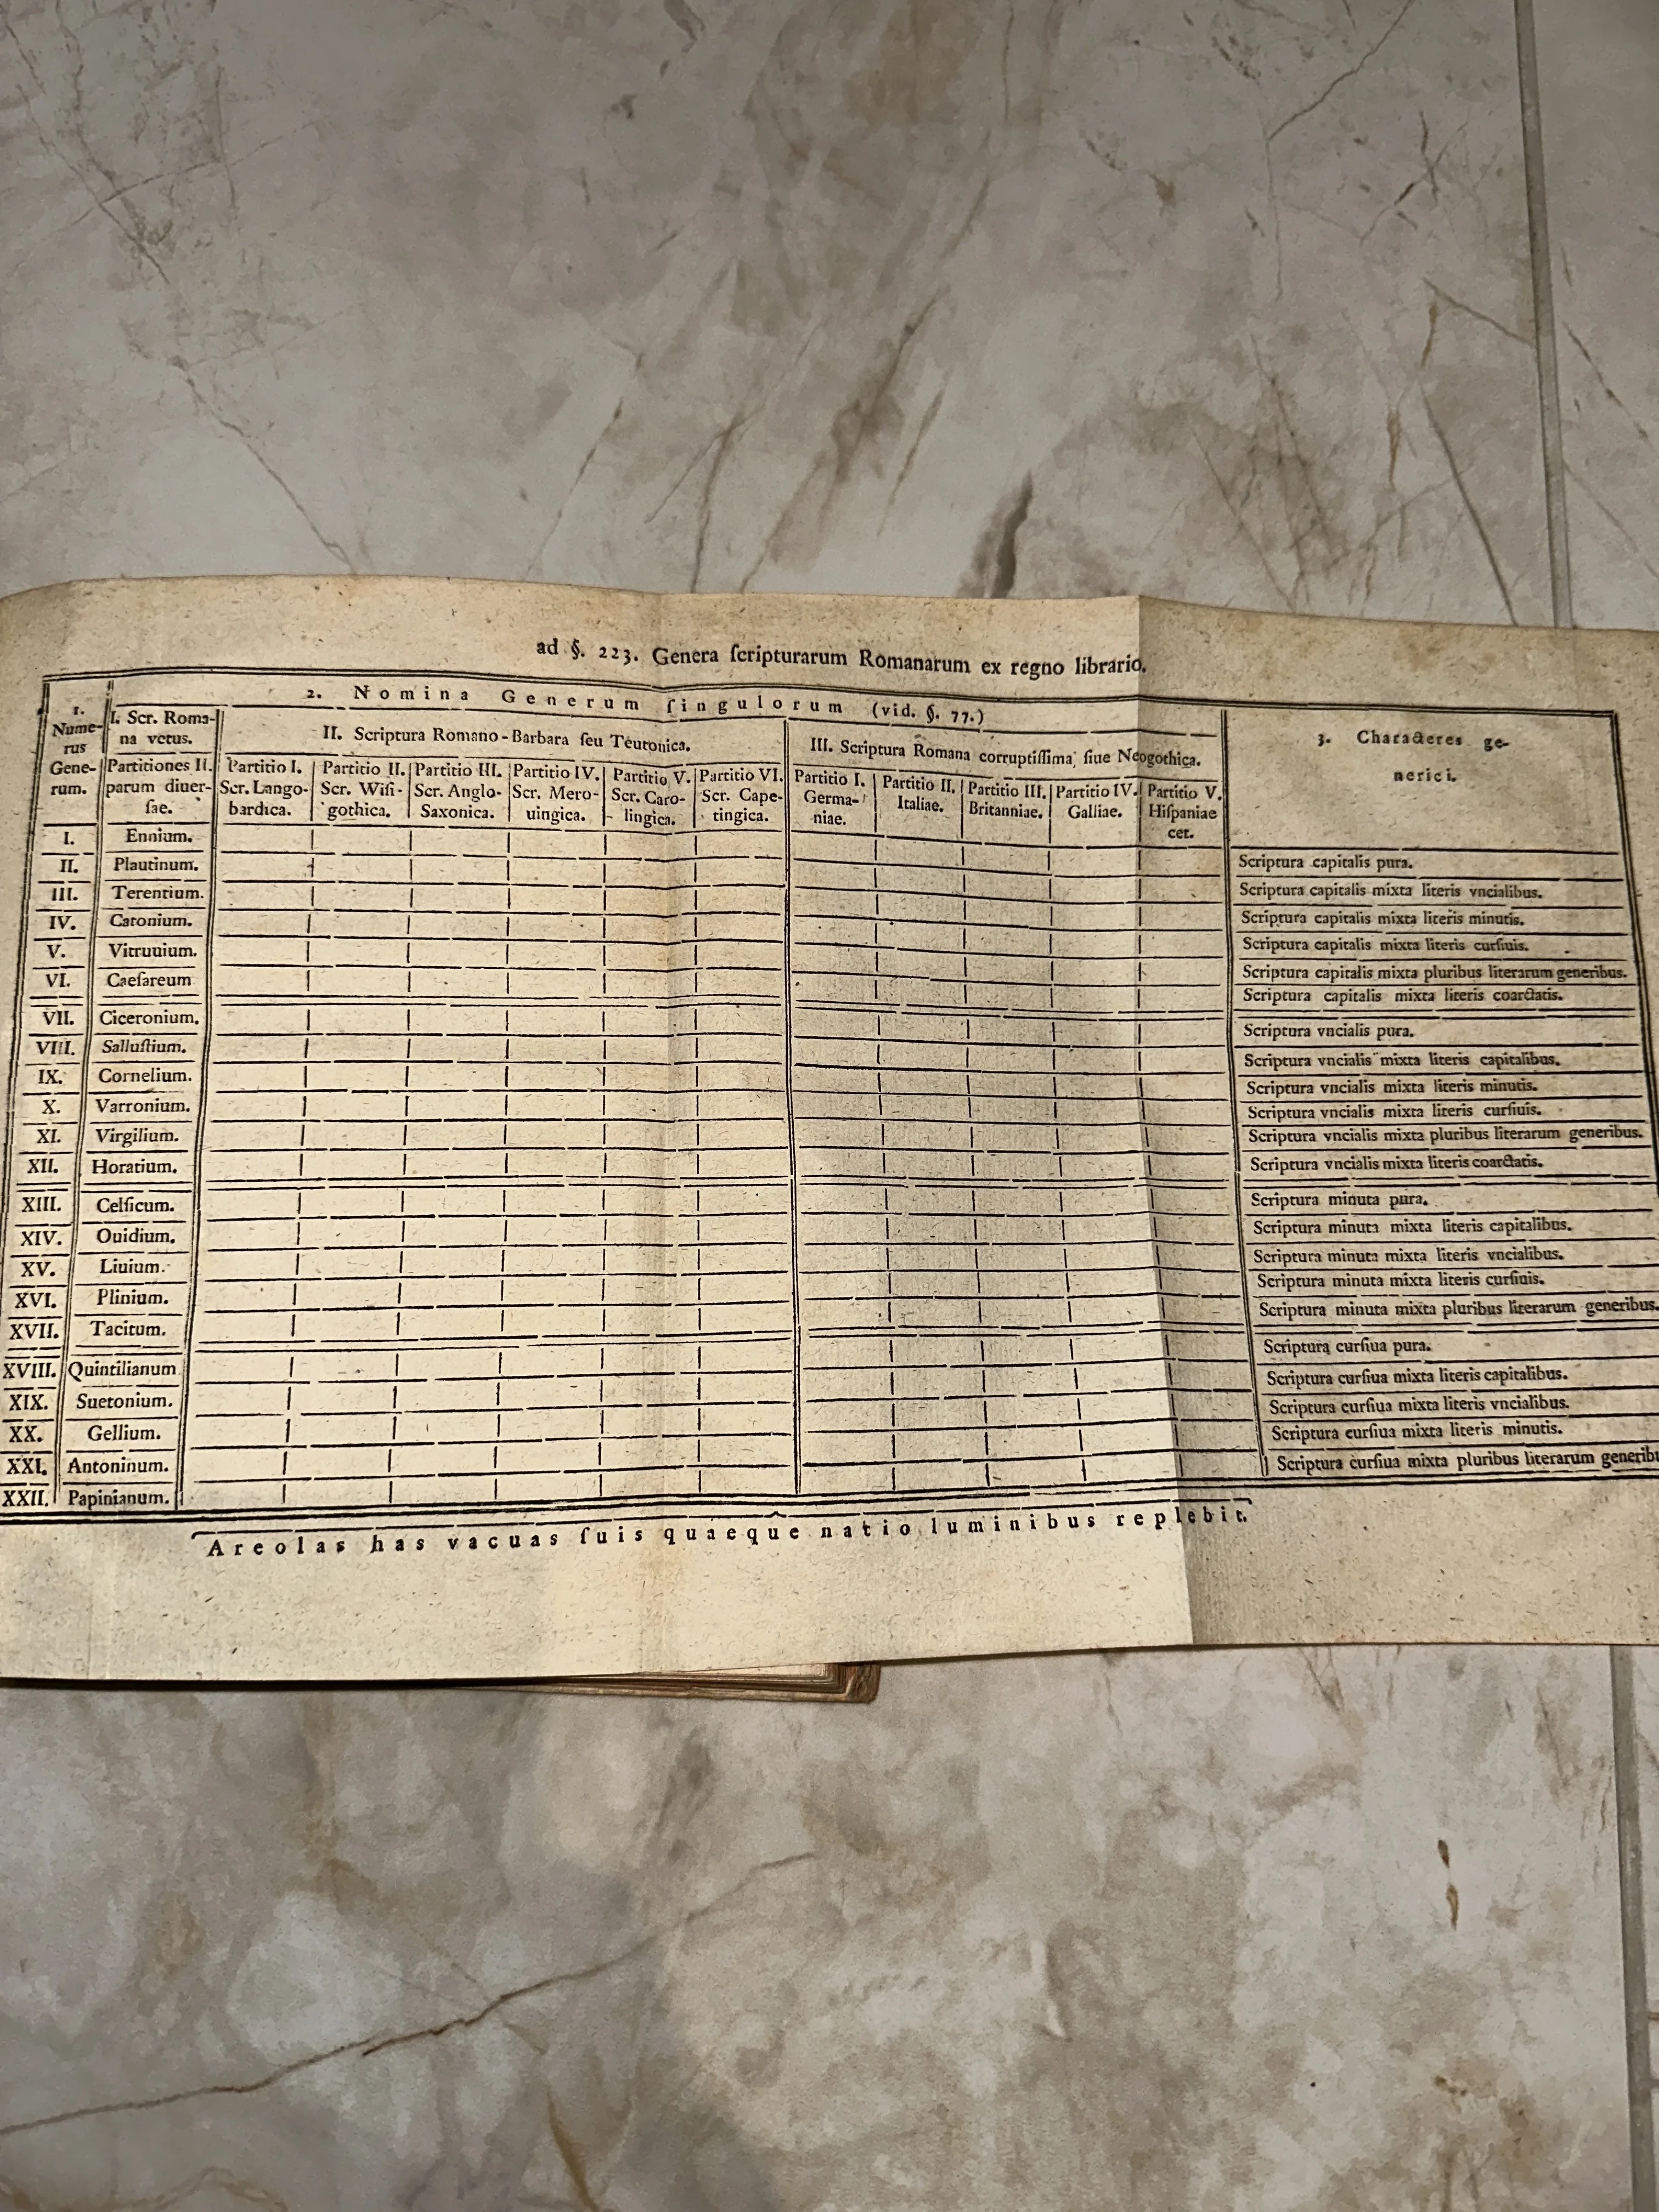 ad §. 223. Genera ſcripturarum Romanarum ex regno librario.
1. Nume-
rus
Gene-
rum.
2. Nomina Generum ſingulorum (vid. §. 77.)
I. Scr. Roma-
na vetus.
Partitiones II.
parum diuer-
ſae.
II. Scriptura Romano-Barbara ſeu Teutonica.
Partitio I.
Scr. Lango-
bardica.
Partitio II.
Scr. Wiſi-
gothica.
Partitio III.
Scr. Anglo-
Saxonica.
Partitio IV.
Scr. Mero-
uingica.
Partitio V.
Scr. Caro-
lingica.
Partitio VI.
Scr. Cape-
tingica.
III. Scriptura Romana corruptiſſima, ſiue Neogothica.
Partitio I.
Germa-
niae.
Partitio II.
Italiae.
Partitio III.
Britanniae.
Partitio IV.
Galliae.
Partitio V.
Hiſpaniae
cet.
3. Characteres ge-
nerici.
I. Ennium. Scriptura capitalis pura.
II. Plautinum. Scriptura capitalis mixta literis vncialibus.
III. Terentium. Scriptura capitalis mixta literis minutis.
IV. Catonium. Scriptura capitalis mixta literis curſiuis.
V. Vitruuium. Scriptura capitalis mixta pluribus literarum generibus.
VI. Caeſareum Scriptura capitalis mixta literis coarctatis.
VII. Ciceronium. Scriptura vncialis pura.
VIII. Salluſtium. Scriptura vncialis mixta literis capitalibus.
IX. Cornelium. Scriptura vncialis mixta literis minutis.
X. Varronium. Scriptura vncialis mixta literis curſiuis.
XI. Virgilium. Scriptura vncialis mixta pluribus literarum generibus.
XII. Horatium. Scriptura vncialis mixta literis coarctatis.
XIII. Celſicum. Scriptura minuta pura.
XIV. Ouidium. Scriptura minuta mixta literis capitalibus.
XV. Liuium. Scriptura minuta mixta literis vncialibus.
XVI. Plinium. Scriptura minuta mixta literis curſiuis.
XVII. Tacitum. Scriptura minuta mixta pluribus literarum generibus.
XVIII. Quintilianum Scriptura curſiua pura.
XIX. Suetonium. Scriptura curſiua mixta literis capitalibus.
XX. Gellium. Scriptura curſiua mixta literis vncialibus.
XXI. Antoninum. Scriptura curſiua mixta literis minutis.
XXII. Papinianum. Scriptura curſiua mixta pluribus literarum generibu
Areolas has vacuas ſuis quaeque natio luminibus replebit.